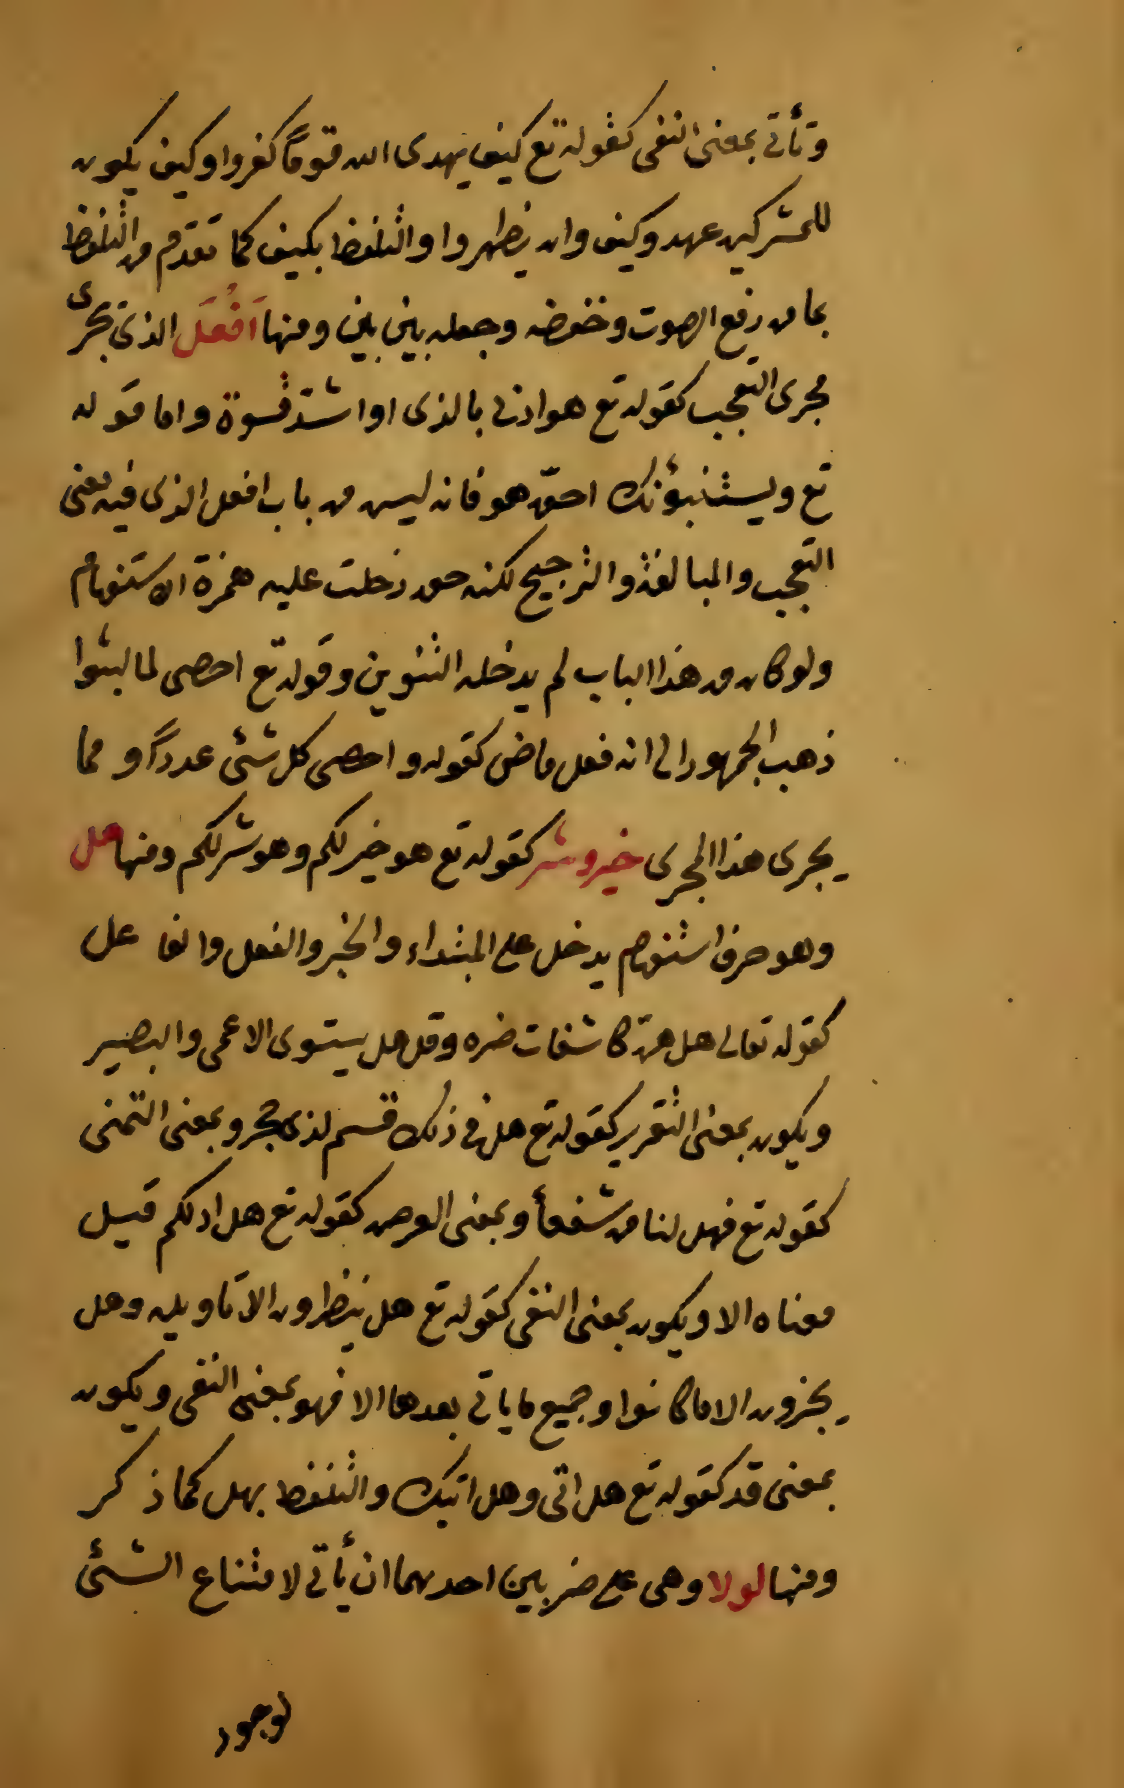 وتأتي بمعنى النفي كقوله تع كيف يهدى الله قوماً كفروا وكيف يكون
للمشركين عهد وكيف وان يظهروا والتلفظ بكيف كما تقدم من التلفظ
بما من رفع الصوت وخفضه وجعله بين بين ومنها اَفْعَلَ الذى يجرى
مجرى التعجب كقوله تع هو ادنى بالذى او اشدّ قسوة واما قوله
تع ويستنبؤنك احقّ هو فانه ليس من باب افعل الذى فيه معنى
التعجب والمبالغة والترجيح لكنه حق دخلت عليه همزة الاستفهام
ولو كان من هذا الباب لم يدخله التنوين وقوله تع احصى لما لبثوا
ذهب الجمهور الى انه فعل ماض كقوله واحصى كل شئ عدداً ومما
يجرى هذا المجرى خير وشر كقوله تع هو خير لكم وهو شر لكم ومنها هل
وهو حرف استفهام يدخل على المبتداء والخبر والفعل والفاعل
كقوله تعالى هل هنّ كاشفات ضره وقل هل يستوى الاعمى والبصير
ويكون بمعنى التقرير كقوله تع هل فى ذلك قسم لذى حجر وبمعنى التمنى
كقوله تع فهل لنا من شفعأ وبمعنى العرض كقوله تع هل ادلكم قيل
معناه الا ويكون بمعنى النفى كقوله تع هل ينظرون الا تاويله وهل
يجزون الا ما كانوا وجميع ما ياتى بعدها الا فهو بمعنى النفى ويكون
بمعنى قد كقوله تع هل اتى وهل اتيك والتلفظ بهل كما ذكر
ومنها لولا وهى على ضربين احدهما ان يأتى لامتناع الشئ
لوجود